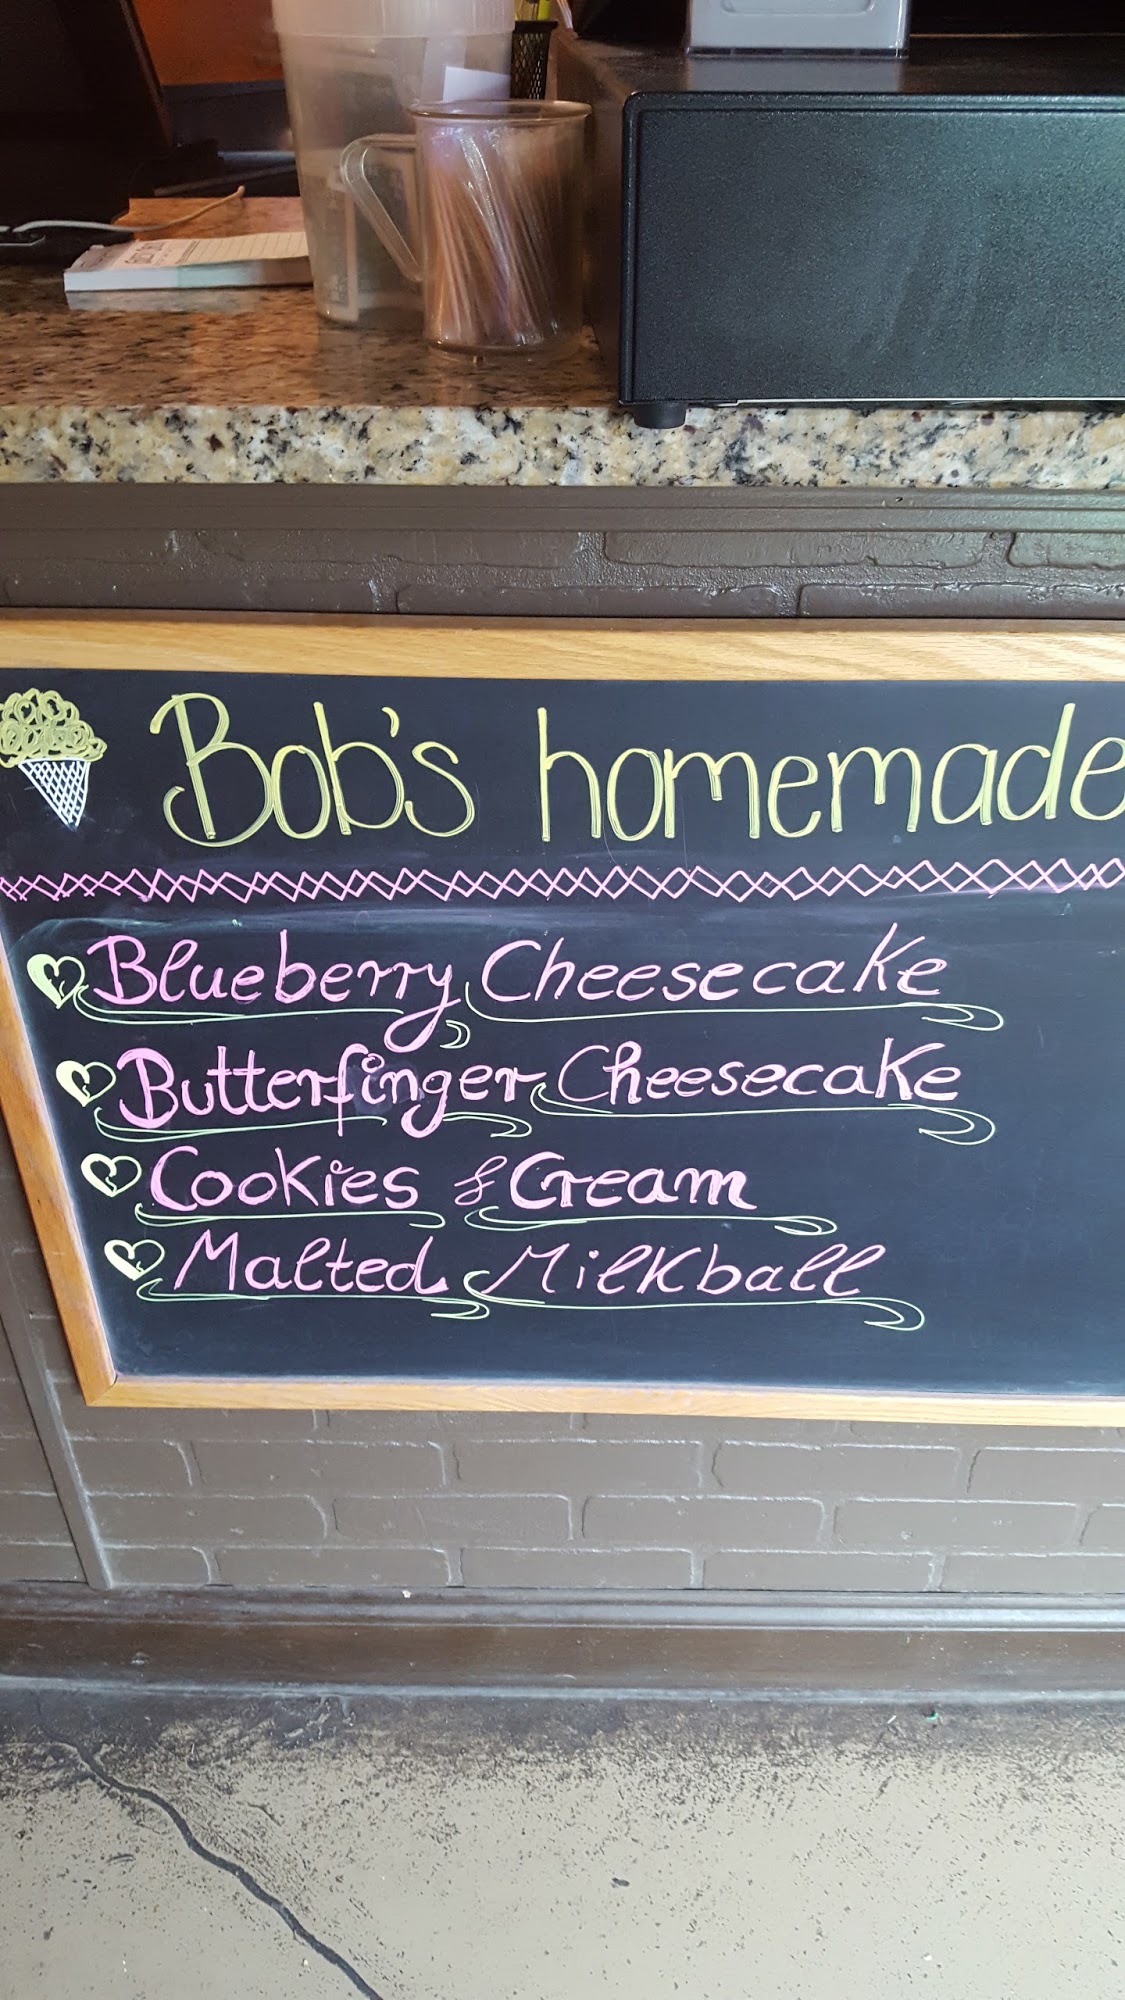 Bob's homemade
Blueberry Cheesecake
Butterfinger Cheesecake
Cookies & Cream
Malted Milkball